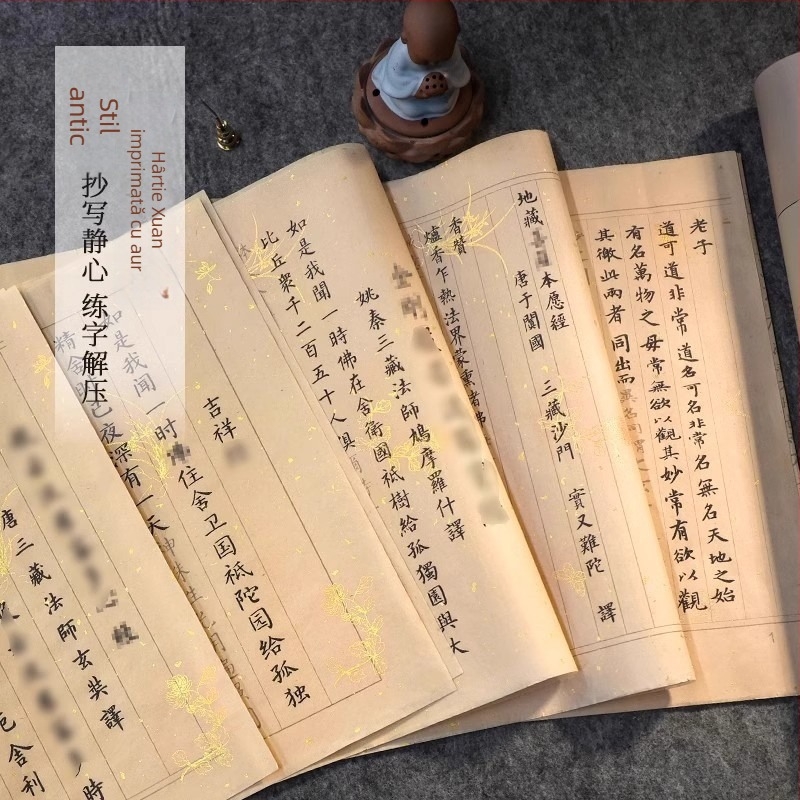 Stil
antic
Hârtie Xuan
imprimată cu aur
抄写静心 练字解压
老子
道可道非常道名可名非常名無名天地之始
有名萬物之母常無欲以觀其妙常有欲以觀
其徼此兩者同出而
地藏
本愿經
唐于闐國 三藏沙門 實又難陀 譯
香讚
爐香乍熱法界蒙熏諸佛
姚秦三藏法師鳩摩羅什譯
如是我聞一時佛在舍衛國祇樹給孤獨園與大
比丘衆千二百五十人俱
吉祥
如是我闻一时
住舍卫国祇陀园给孤独
精舍
夜深有一天
唐三藏法師玄奘譯
舍利
時
1